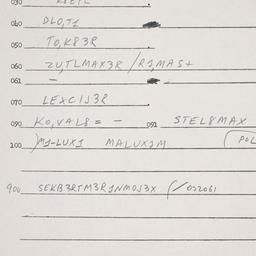 040 DLO,T1
050 TO,K83R
060 ZU,TLMAX3R / R1MAS+
061 –
070 LEXC1J3R
090 KO,VAL8 = – 091 STEL8MAX
100 )M1-LUX1 MALUX1M POL
900 SEKB3RTM3R1NMOJ3X (/022061